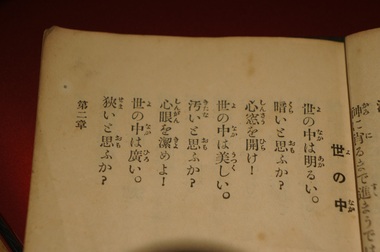 神に育るまで進まうでは
世の中
世の中は明るい。
暗いと思ふか？
心窓を開け！
世の中は美しい。
汚いと思ふか？
心眼を潔めよ！
世の中は廣い。
狹いと思ふか？
第二章